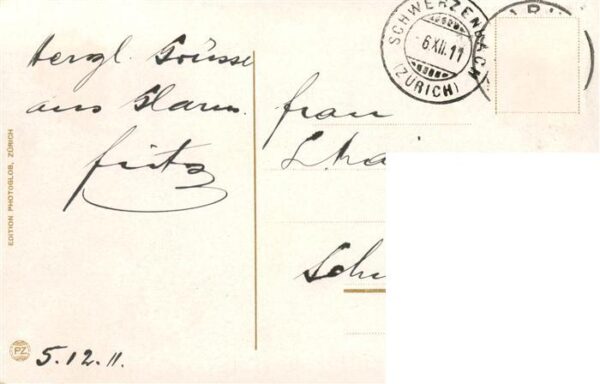 Herzl. Grüsse
aus Glarus.
Fritz
5.12.11.
EDITION PHOTOGLOB, ZÜRICH
PZ
SCHWERZENBACH
(ZÜRICH)
-6.XII.11
Frau
Sch